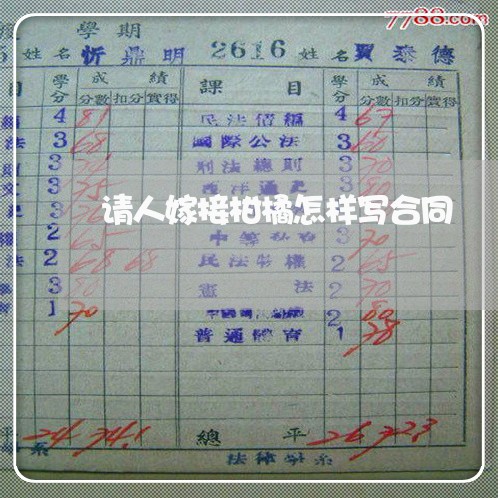 7788.com
學期
姓名 忻鼎明 2616 姓名 賈泰德
目 學分 成績 課目 學分 成績
分數 扣分 實得 分數 扣分 實得
4 81 民法債編 4 67
法 3 68 國際公法 3 60
3 刑法總則 3 70
文 3 75 西洋通史 3 80
请人嫁接柑橘怎样写合同
2 65 3 70
法 2 68 68 民法物權 2 65
3 80 憲法 2 70
1 70 2 80
普通體育 1 78
平 24 74.1 總平 26 72.3
系 法律學系